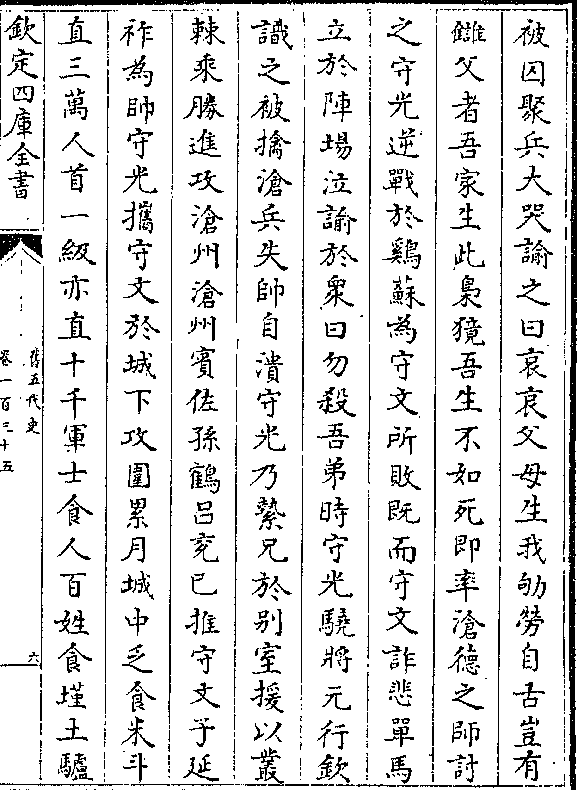 被囚聚兵大哭諭之曰哀哀父母生我劬勞自古豈有
讎父者吾家生此梟獍吾生不如死即率滄德之師討
之守光逆戰於鷄蘇為守文所敗既而守文詐悲單馬
立於陣場泣諭於衆曰勿殺吾弟時守光驍將元行欽
識之被擒滄兵失帥自潰守光乃縶兄於别室援以叢
棘乘勝進攻滄州滄州賓佐孫鶴吕兖已推守文子延
祚為帥守光攜守文於城下攻圍累月城中乏食米斗
直三萬人首一級亦直十千軍士食人百姓食墐土驢
欽定四庫全書
舊五代史
卷一百三十五
六